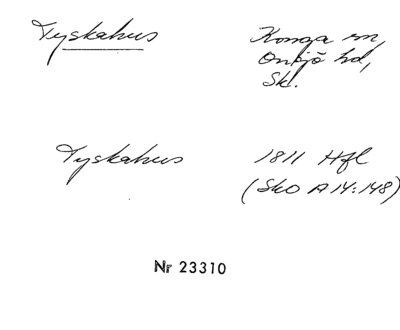 Tyskahus
Konga sn,
Onsjö hd,
Sk.
Tyskahus
1811 Hfl
(SkO A14:148)
Nr 23310